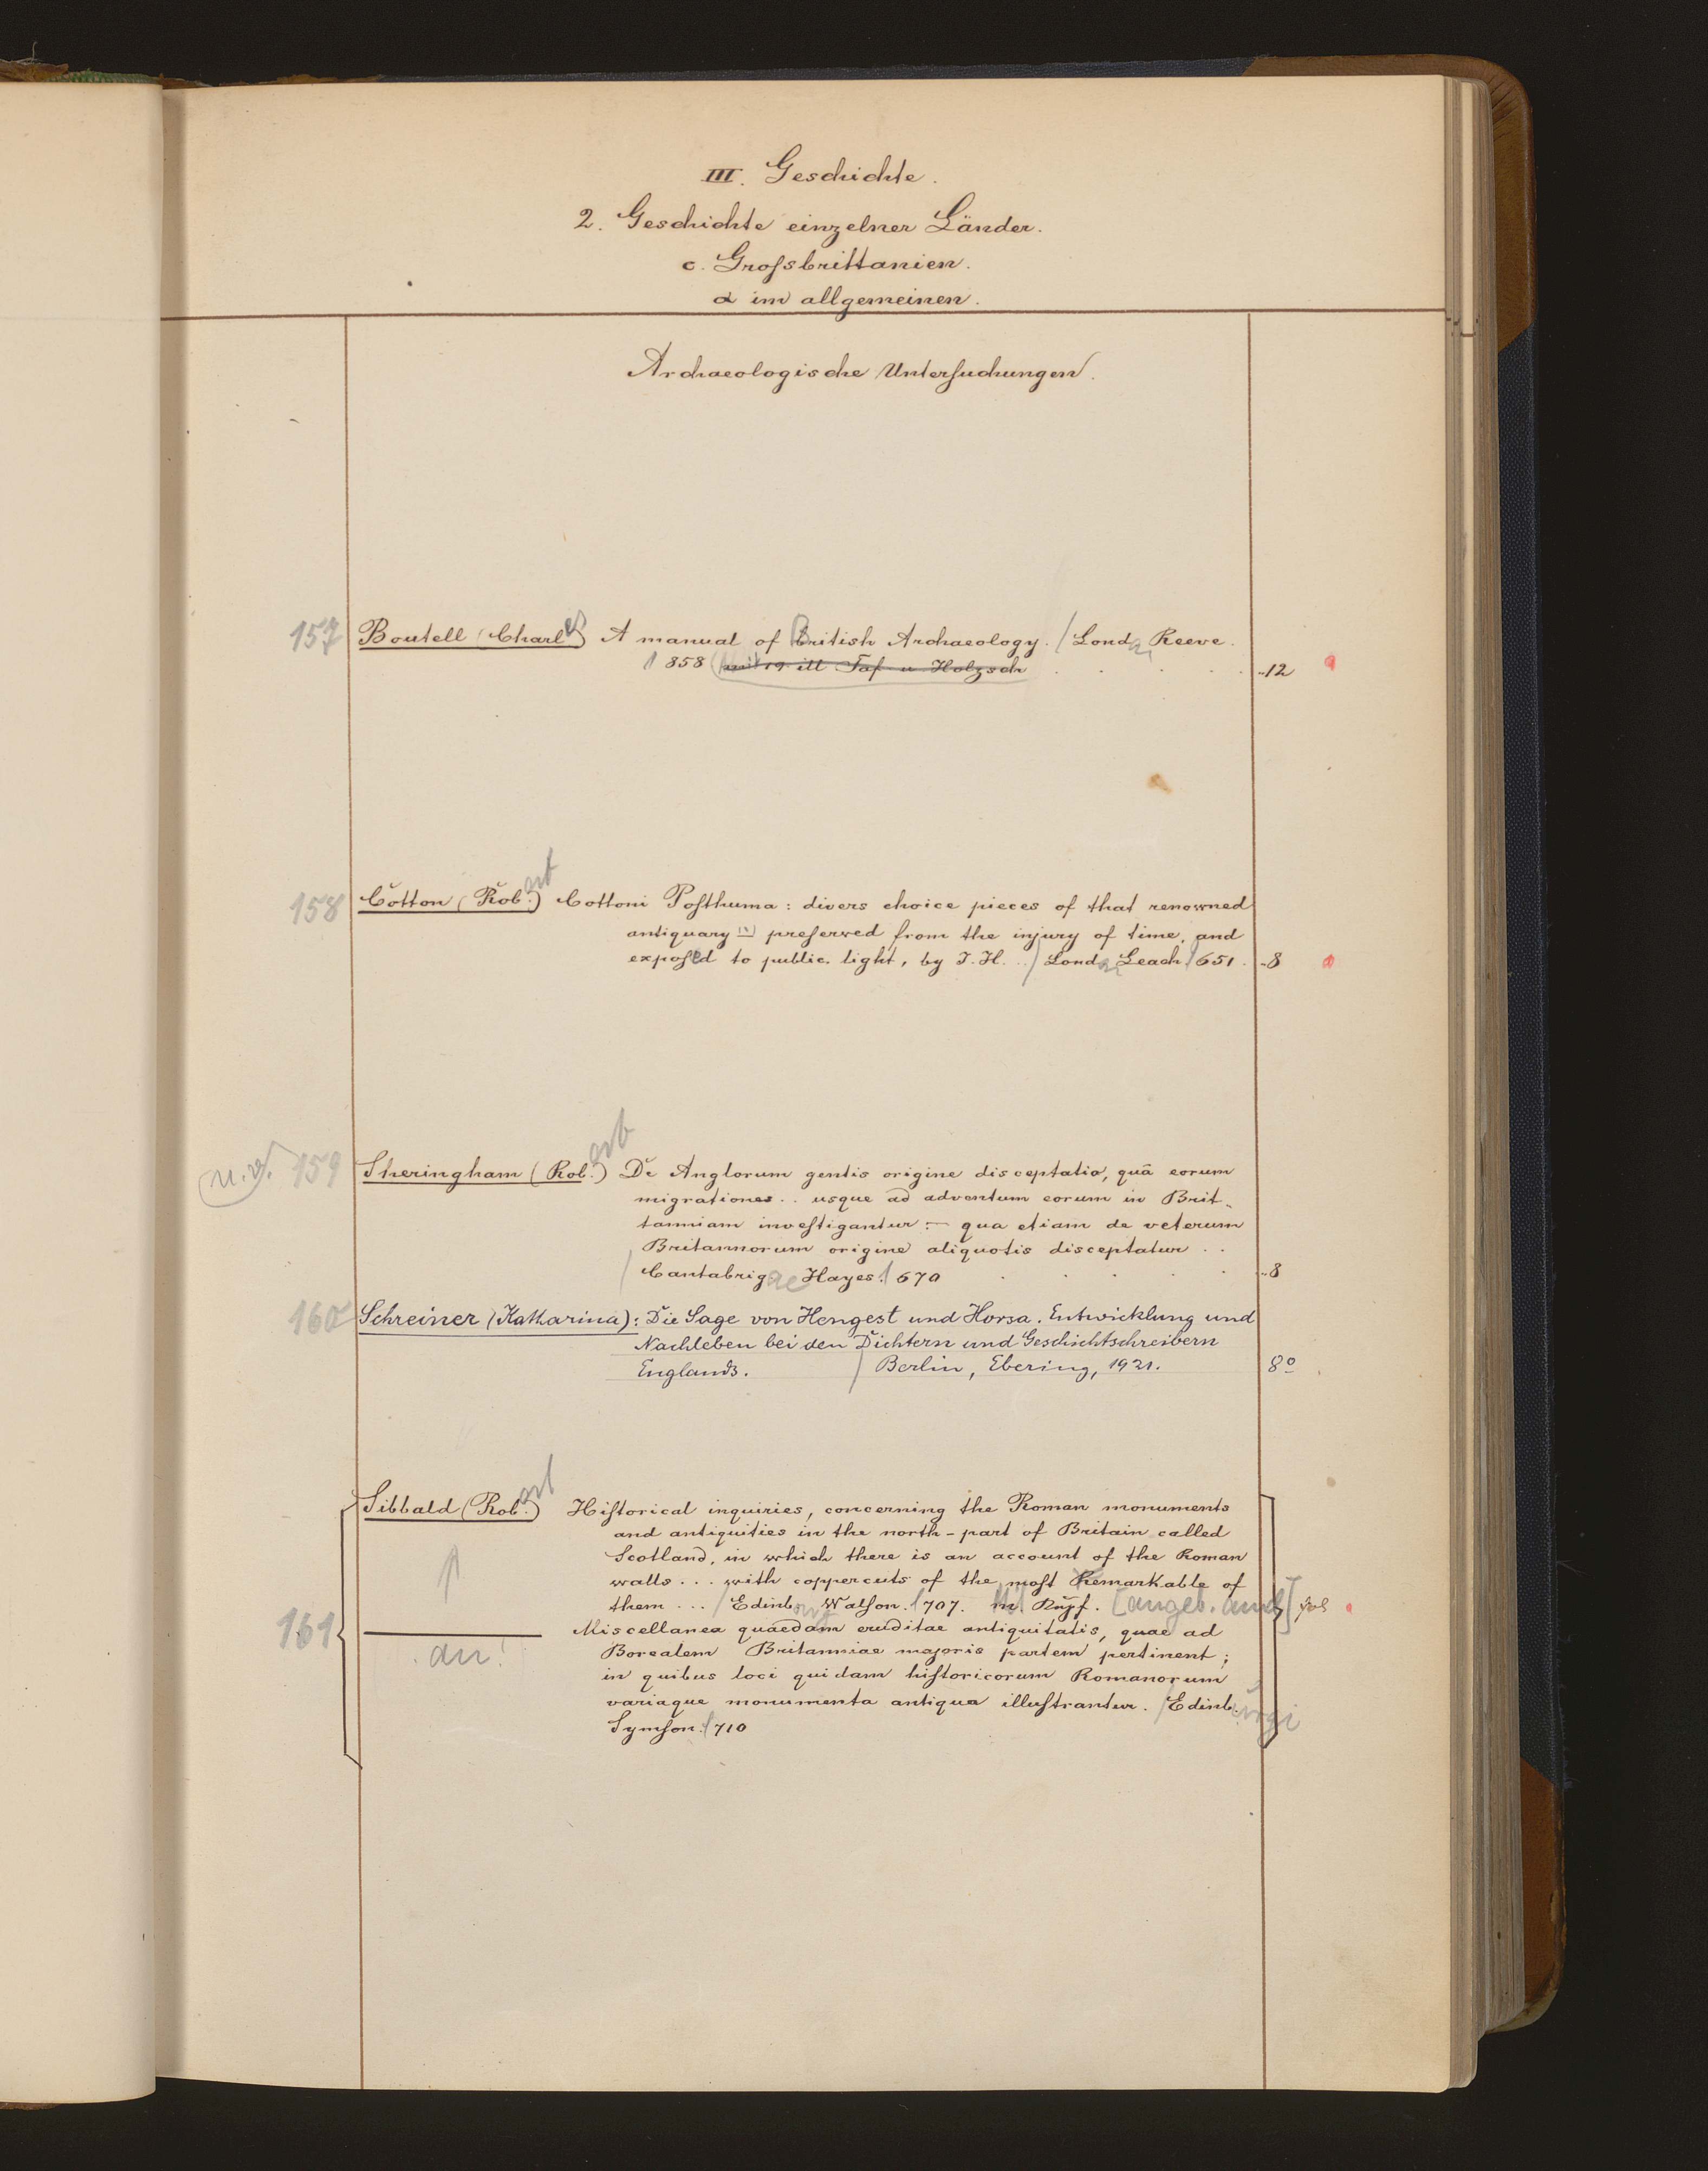 III. Geschichte.
2. Geschichte einzelner Länder.
c. Grossbrittanien.
α im allgemeinen.
Archaeologische Untersuchungen.
157 Boutell (Charles) A manual of British Archaeology. / Lond Reeve.
1858 (mit 19 ill Taf u Holzsch . . . . . 12
158 Cotton (Robert) Cottoni Posthuma: divers choice pieces of that renowned
antiquary preserved from the injury of time, and
exposed to public light, by J. H. .. / Lond Leach 1651. 8
u. v. 159 Sheringham (Rob.) De Anglorum gentis origine disceptatio, quā eorum
migrationes .. usque ad adventum eorum in Brit-
tanniam investigantur :— qua etiam de veterum
Britannorum origine aliquotis disceptatur ..
/ Cantabrigae Hayes. 1670 . . . . . 8
160 Schreiner (Katharina): Die Sage von Hengest und Horsa. Entwicklung und
Nachleben bei den Dichtern und Geschichtschreibern
Englands. / Berlin, Ebering, 1921. 8º
Sibbald (Rob.) Historical inquiries, concerning the Roman monuments
and antiquities in the north-part of Britain called
Scotland, in which there is an account of the Roman
walls ... with coppercuts of the most Remarkable of
them ... / Edinburg Watson. 1707. m Kupf. [angeb. and] fol
161 Miscellanea quaedam eruditae antiquitatis, quae ad
an! Borealem Britanniae majoris partem pertinent;
in quibus loci quidam historicorum Romanorum
variaque monumenta antiqua illustrantur. / Edinb.urgi
Symson. 1710